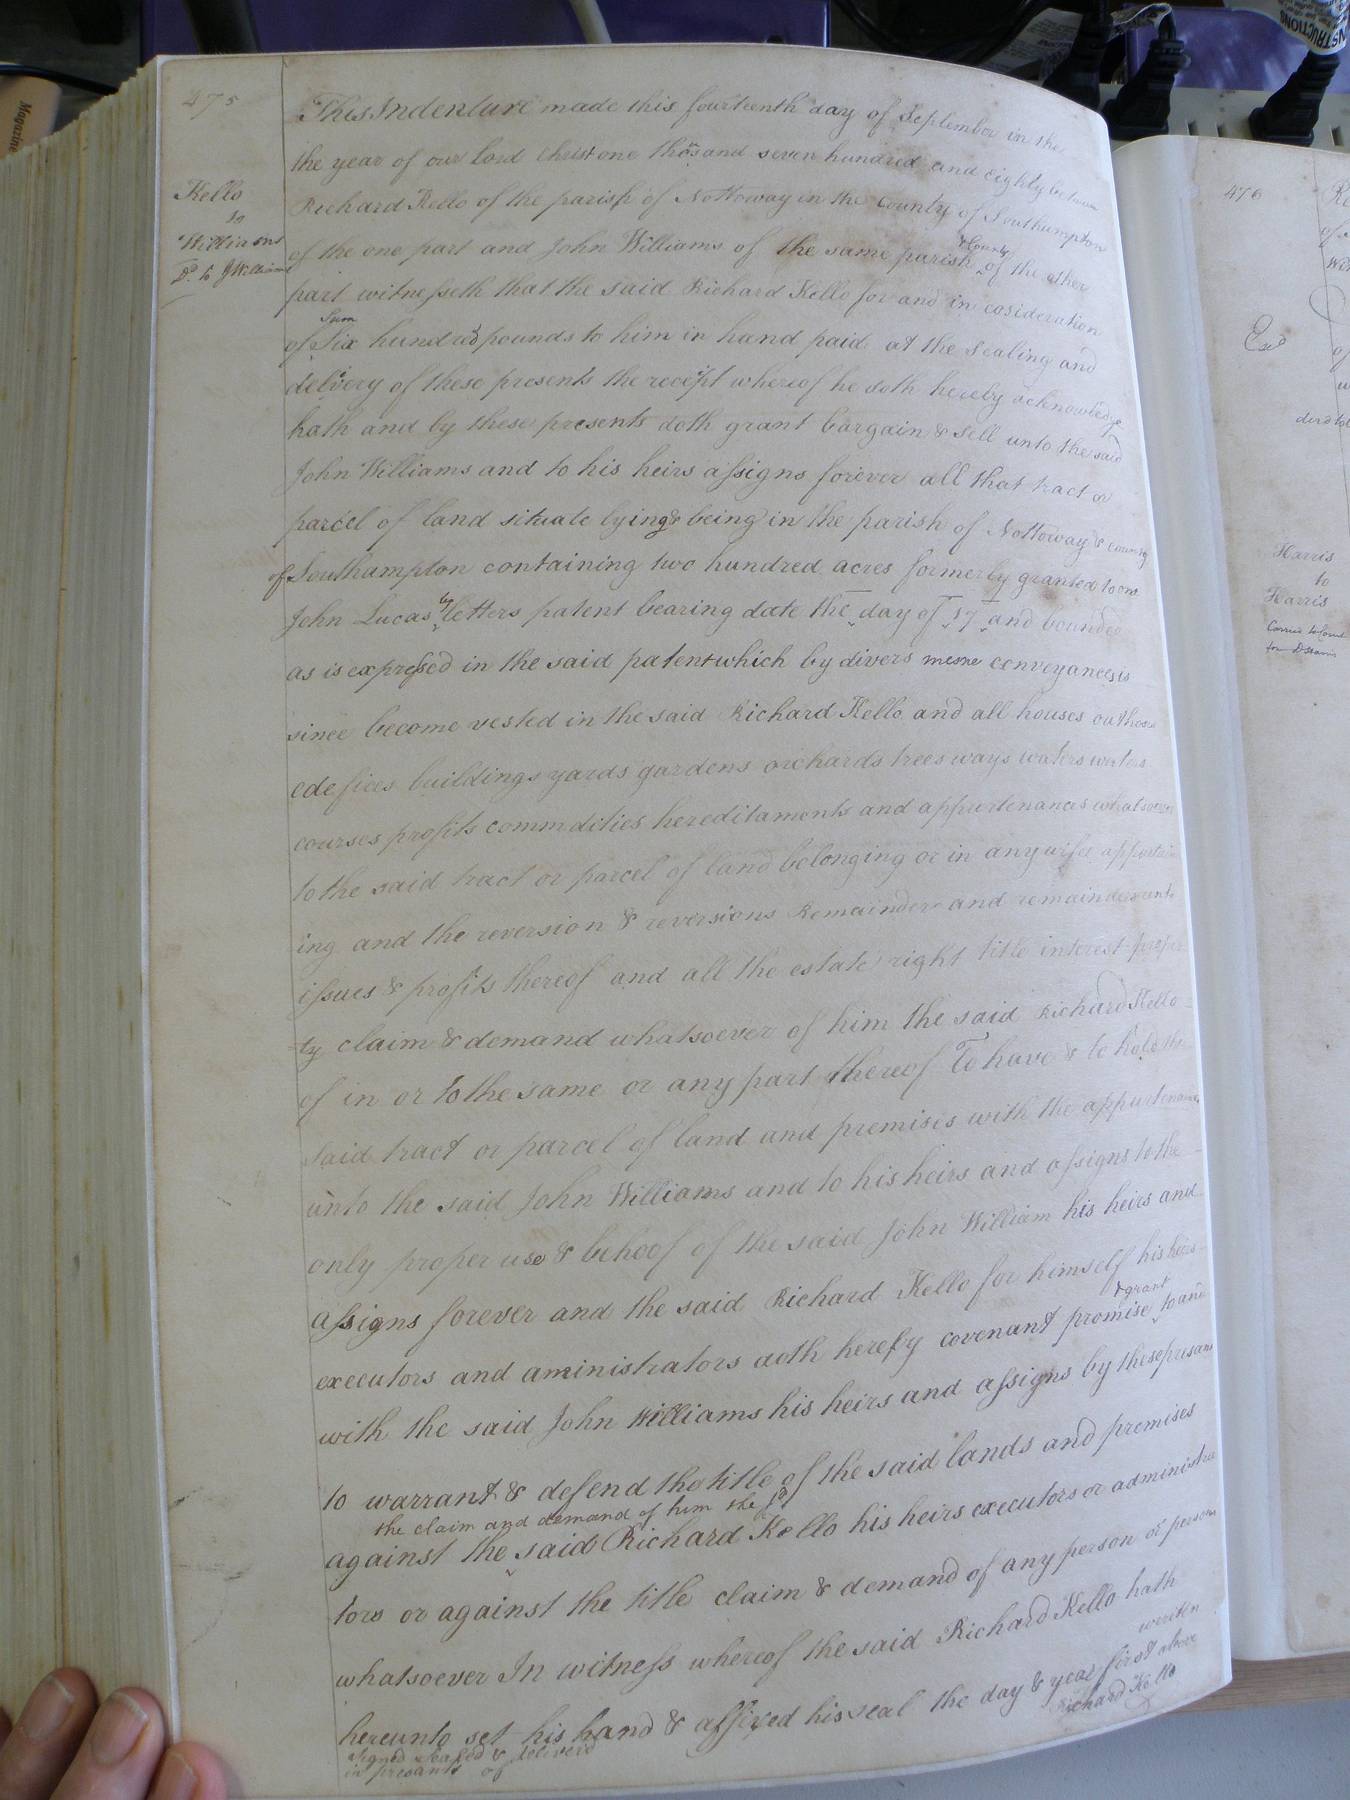 475
This Indenture made this fourteenth day of September in the
the year of our Lord Christ one thousand seven hundred and eighty between
Kello
to
Williams
Dd. to JWilliams
Richard Kello of the parish of Nottoway in the County of Southampton
of the one part and John Williams of the same parish & County of the other
part witnesseth that the said Richard Kello for and in cosideration
of Sum Six hundred pounds to him in hand paid at the sealing and
delivery of these presents the receipt whereof he doth hereby acknowledge
hath and by these presents doth grant bargain & sell unto the said
John Williams and to his heirs assigns forever all that tract or
parcel of land situate lying & being in the parish of Nottoway & county
of Southampton containing two hundred acres formerly granted to one
John Lucas by letters patent bearing date the day of 17 and bounded
as is expressed in the said patent which by divers mesne conveyances is
since become vested in the said Richard Kello and all houses outhouses
edefices buildings yards gardens orchards trees ways waters water
courses profits commdities hereditaments and appurtenances whatsoever
to the said tract or parcel of land belonging or in any wise appertain
ing and the reversion & reversions Remainder and remainders rents
issues & profits thereof and all the estate right title interest proper
ty claim & demand whatsoever of him the said Richard Kello
of in or to the same or any part thereof To have & to hold the
said tract or parcel of land and premises with the appurtenances
unto the said John Williams and to his heirs and assigns to the
only proper use & behoof of the said John William his heirs and
assigns forever and the said Richard Kello for himself his heirs
executors and aministrators doth hereby covenant promise & grant to and
with the said John Williams his heirs and assigns by these presants
to warrant & defend the title of the said lands and premises
against the the claim and demand of him the sd said Richard Kello his heirs executors or administra
tors or against the title claim & demand of any person or persons
whatsoever In witness whereof the said Richard Kello hath
hereunto set his hand & affixed his seal the day & year first above weriten
Richard Kello
signed sealed & deliverd
in presants of
476
Exd
Harris
to
Harris
INSTRUCTIONS
Magazine